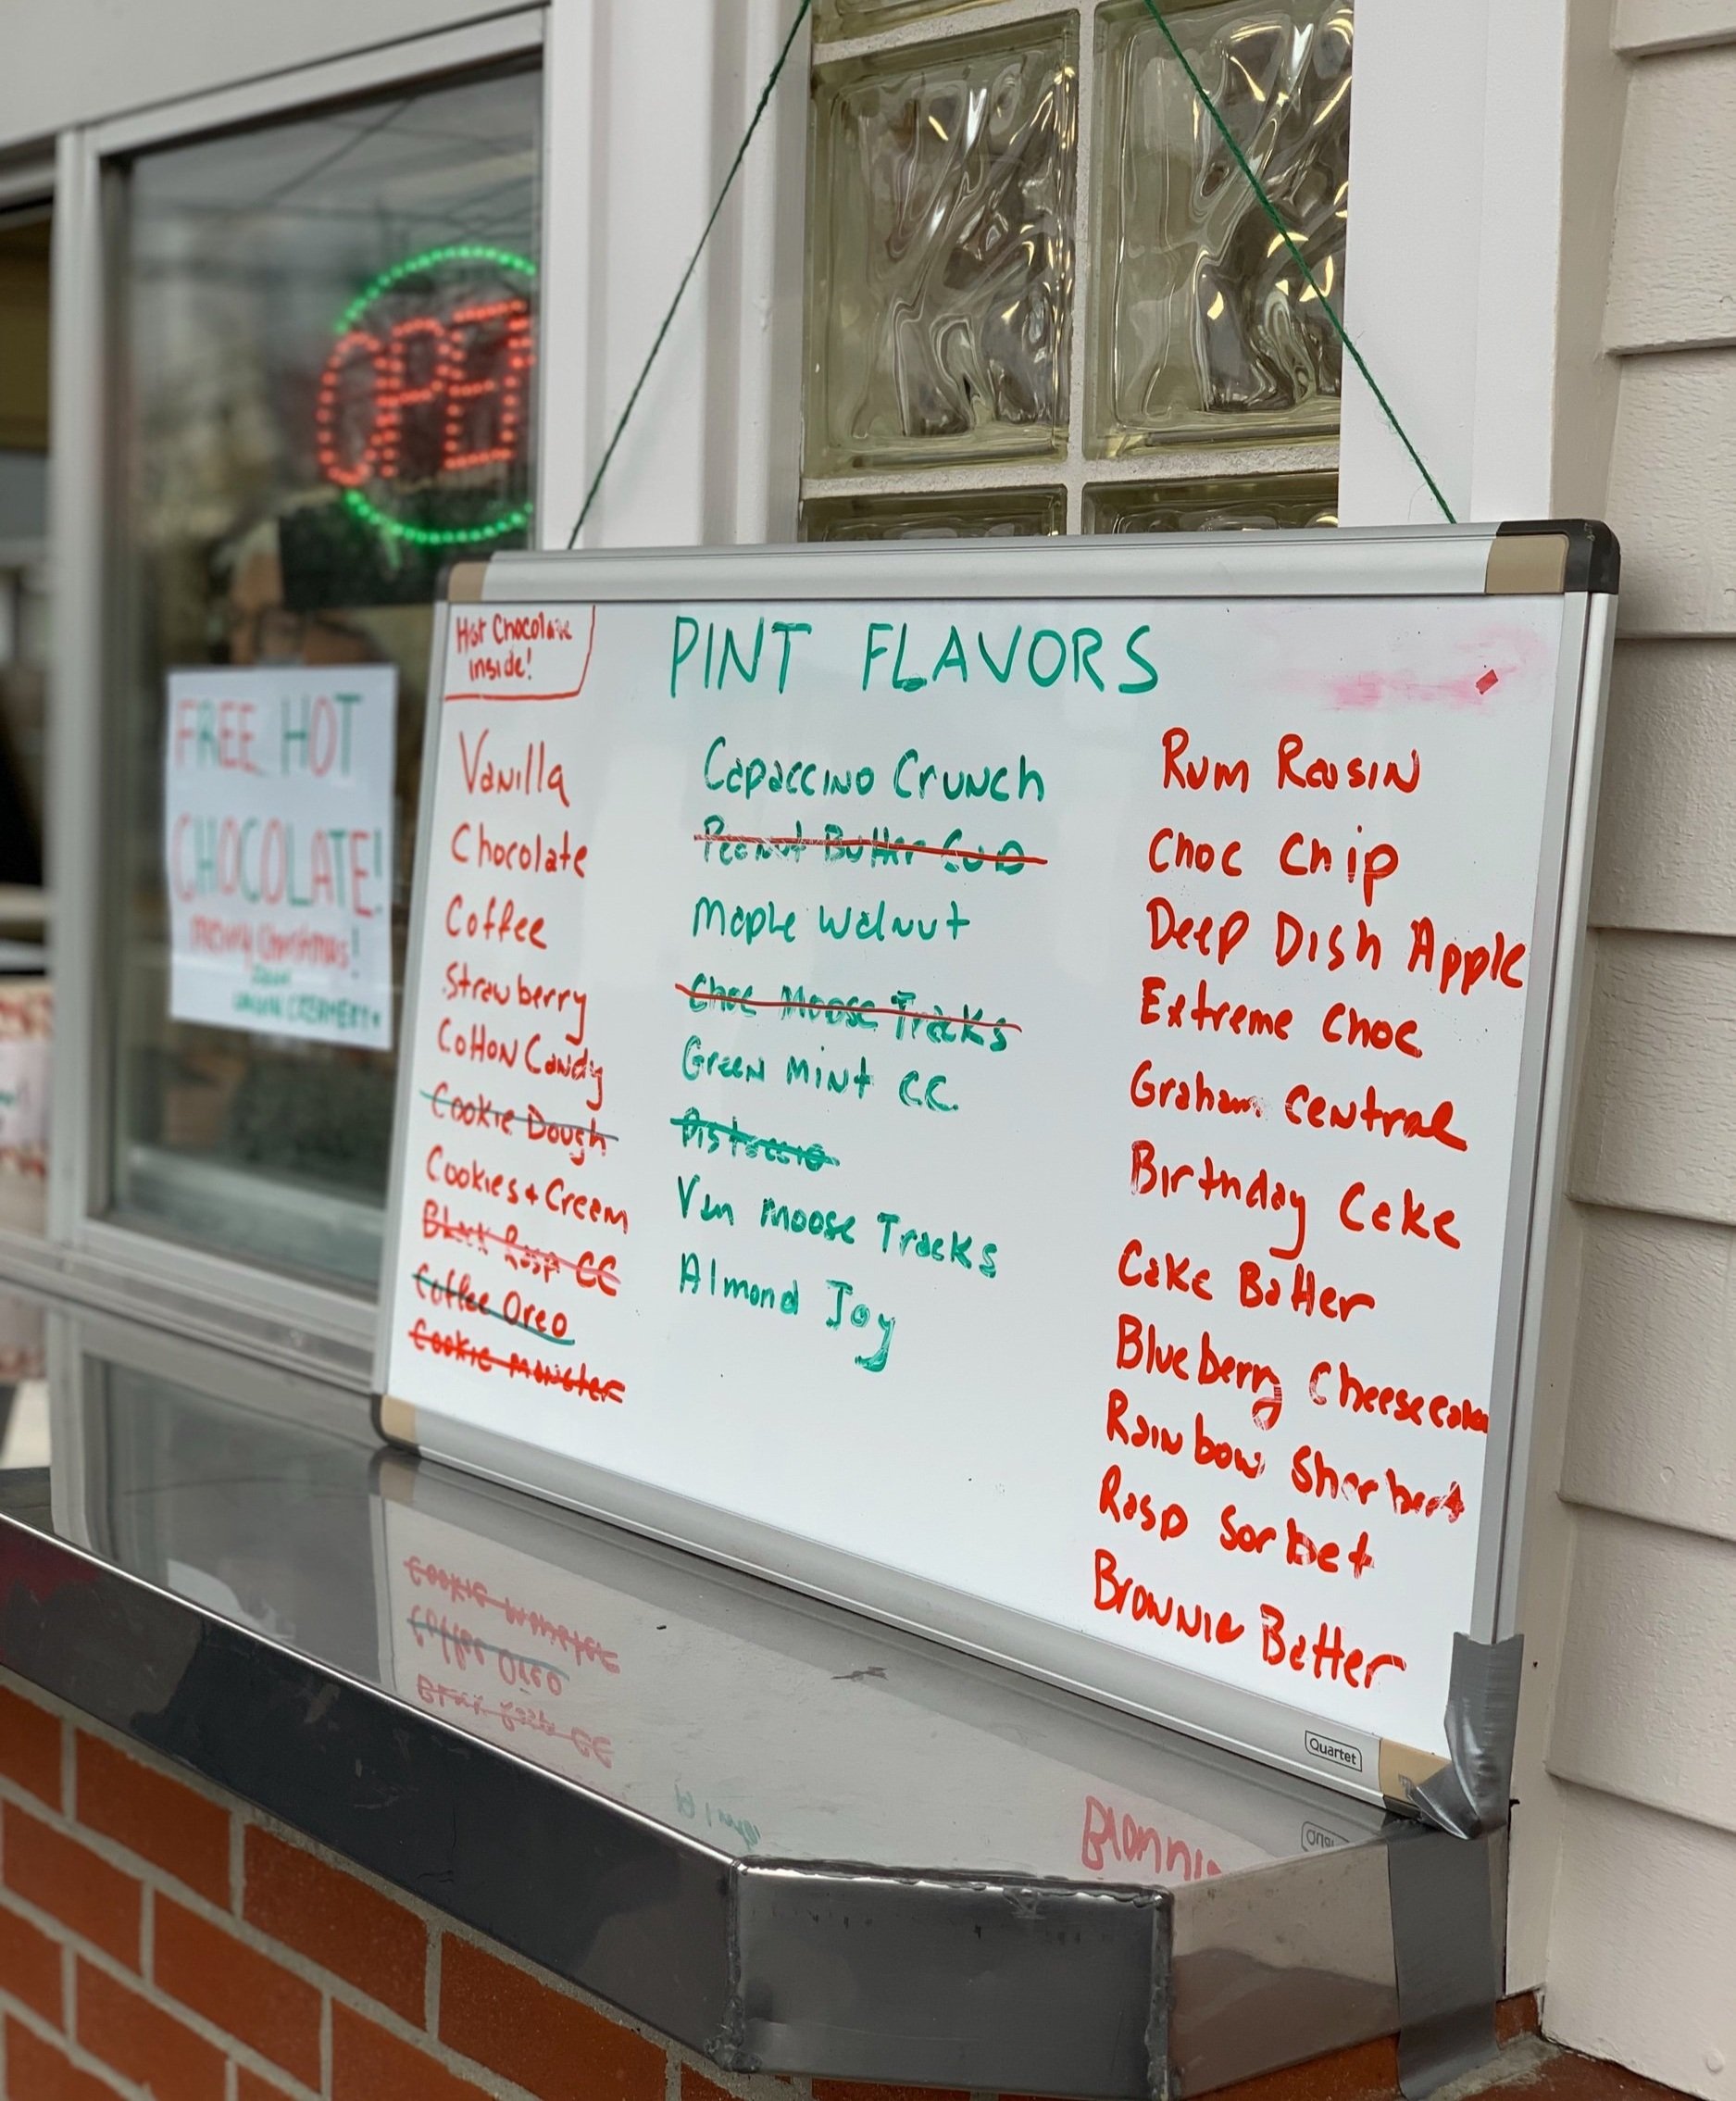 OPEN
FREE HOT
CHOCOLATE!
Merry Christmas!
Hot Chocolate
Inside!
PINT FLAVORS
Vanilla
Chocolate
Coffee
Strawberry
Cotton Candy
Cookie Dough
Cookies + Cream
Black Rasp CC
Coffee Oreo
Cookie Monster
Capaccino Crunch
Peanut Butter Cup
Maple Walnut
Choc Moose Tracks
Green Mint CC
Pistaccio
Van Moose Tracks
Almond Joy
Rum Raisin
Choc Chip
Deep Dish Apple
Extreme Choc
Graham Central
Birthday Cake
Cake Batter
Blueberry Cheesecake
Rainbow Sherbert
Rasp Sorbet
Brownie Batter
Quartet